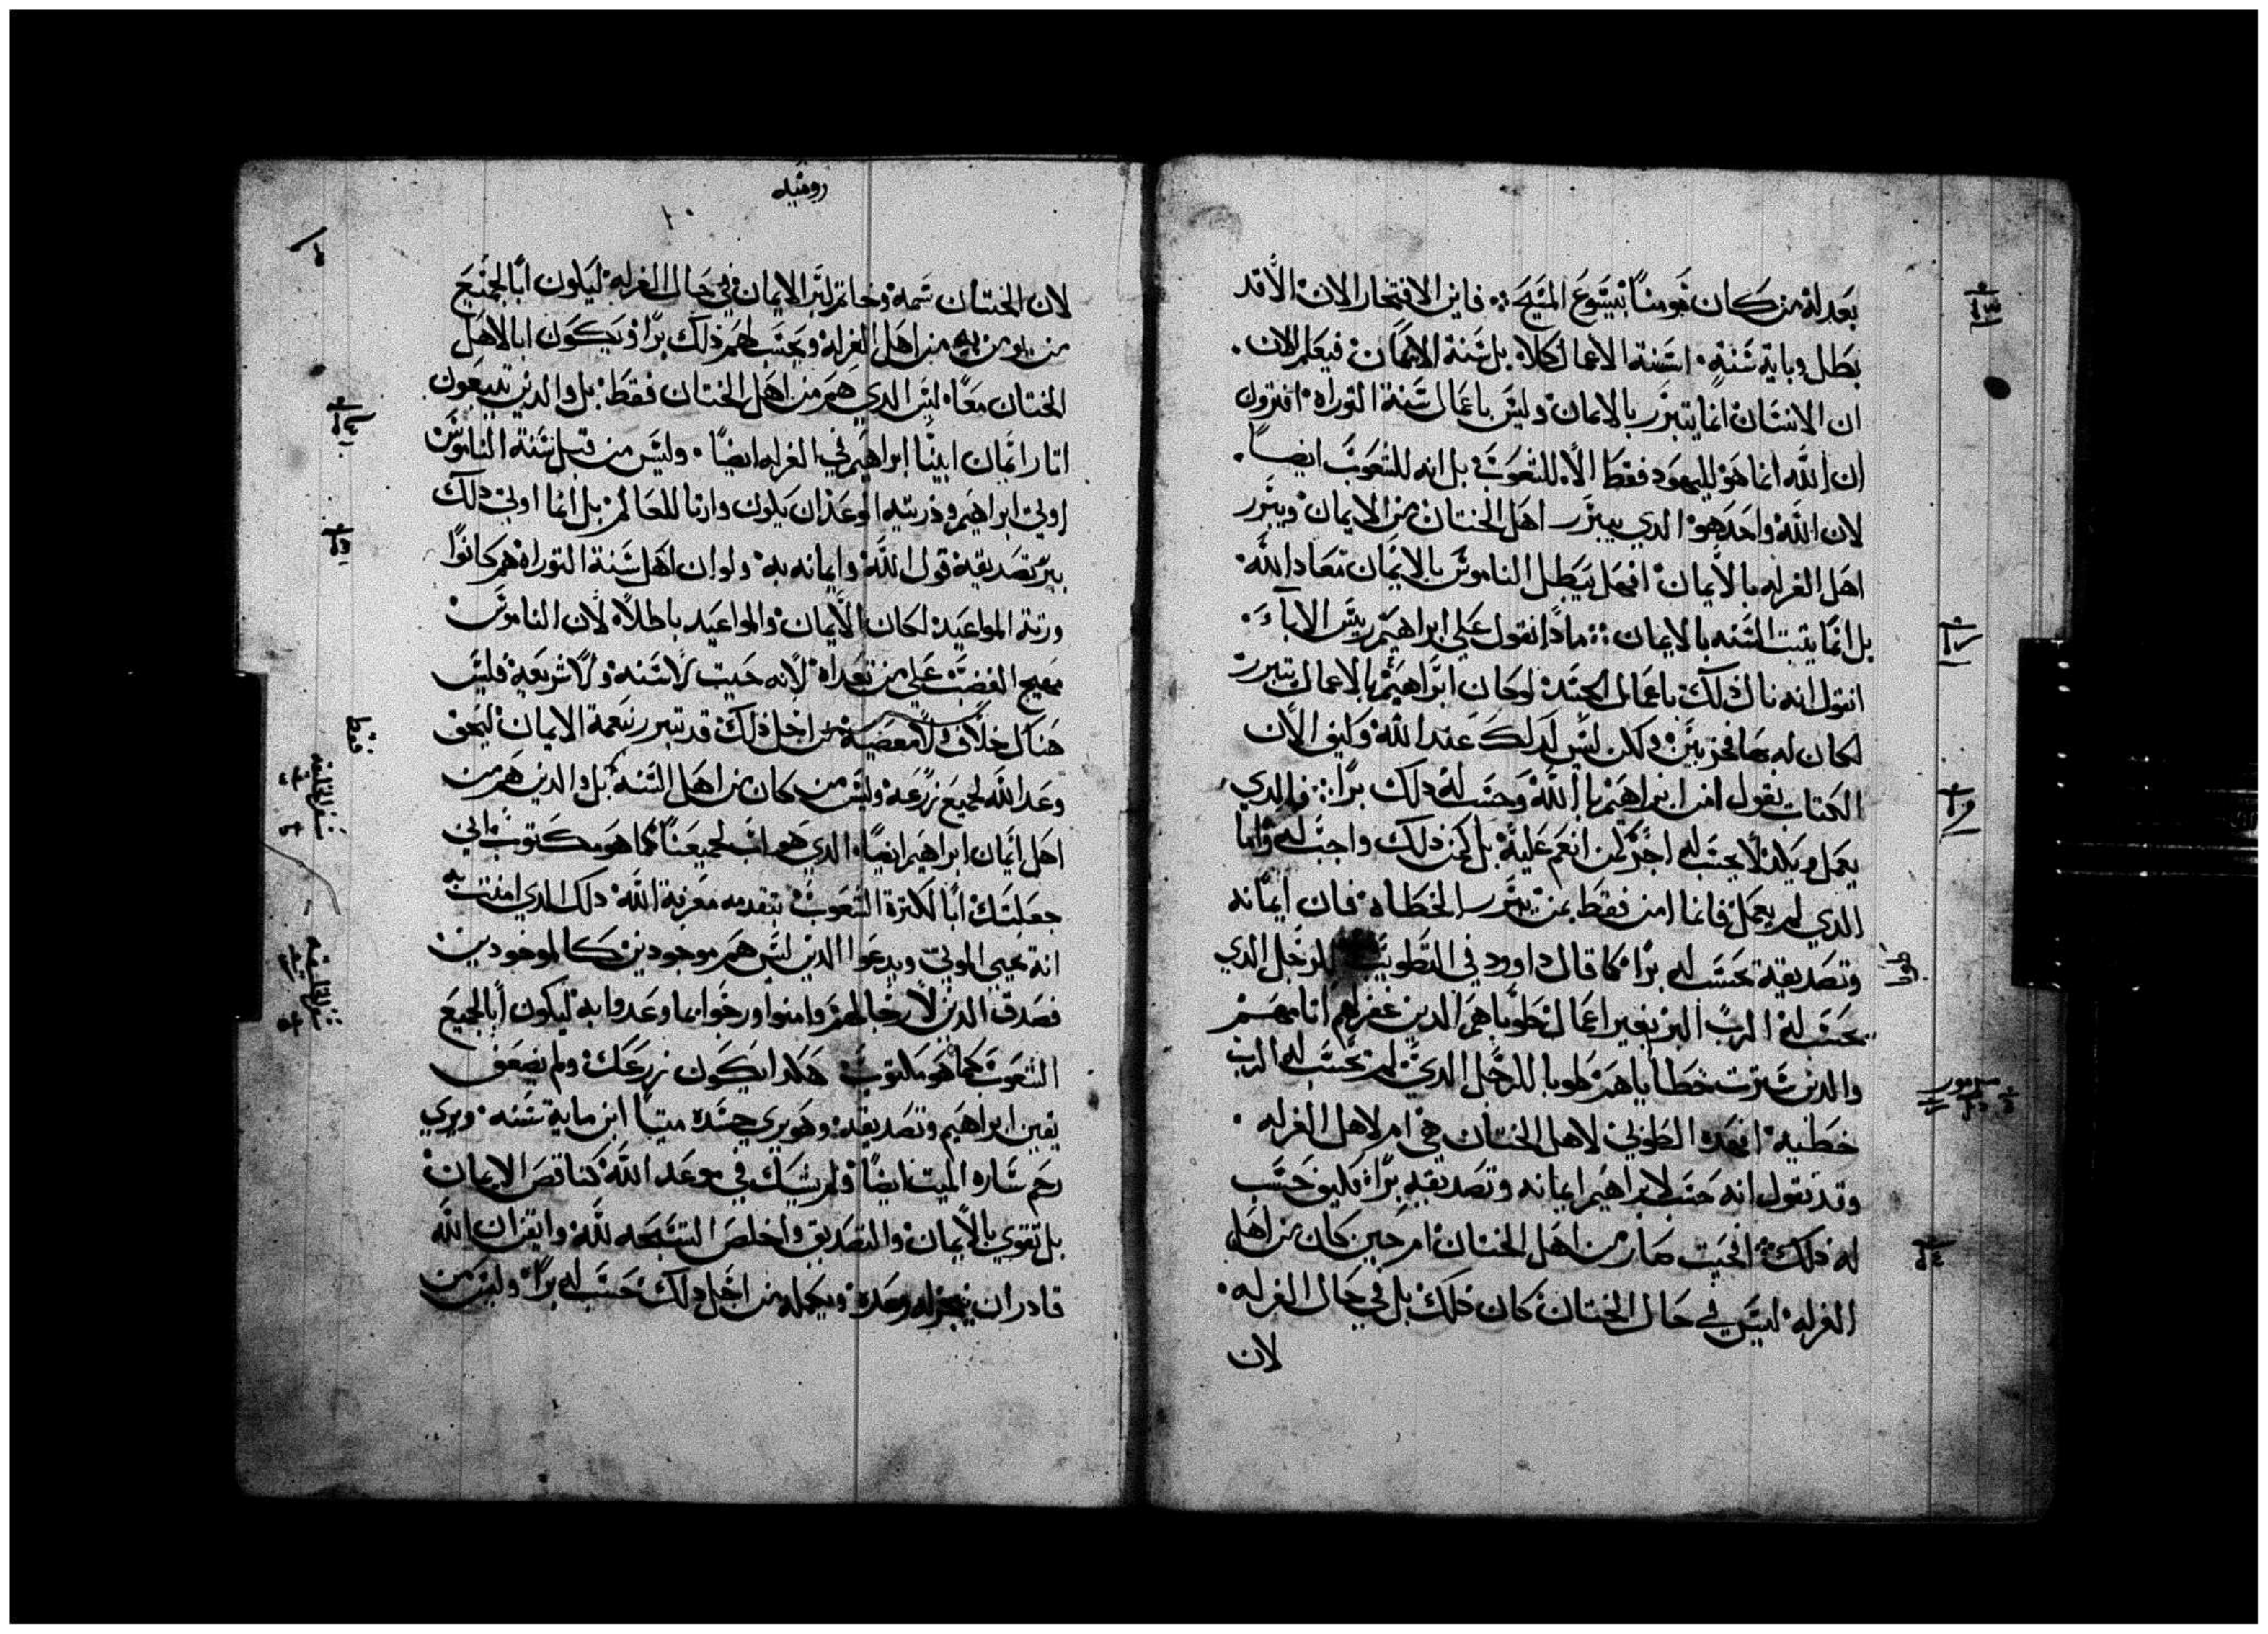 بعدله من كان مومنًا بيسوع المسيح ⁘ فاين الافتخار الان الا قد
بطل وباية سنةٍ اسنة الاعمال كلا بل سنة الايمان فيعلم الان
ان الانسان انما يتبرر بالايمان وليس باعمال سنة التوراه افترون
ان الله انما هو لليهود فقط الا للشعوب بل انه للشعوب ايضًا
لان الله واحد هو الدي يبرر اهل الختان من الايمان ويبرر
اهل الغرله بالايمان افهل يبطل الناموس بالايمان معاد الله
بل انما يتبت السنه بالايمان ⁘ مادا نقول علي ابراهيم ريس الاباء
انقول انه نال دلك باعمال الجسد لو كان ابراهيم بالاعمال تبرر
لكان له بها فخر بين ولكن ليس لدلك عند الله وكيف الان
الكتاب يقول امن ابراهيم بالله وحسب له دلك برًا ⁘ فالدي
يعمل ويكد لا يحسب له اجره كمن انعم عليه بل كمن دلك واجب له واما
الدي لم يعمل فانما امن فقط بمن يبرر الخطاه فان ايمانه
وتصديقه يحسب له برًا كما قال داوود في التطويب للرجل الدي
يحسب له الرب البر بغير اعمال طوبا هم الدين غفر لهم اتامهم
والدين سترت خطاياهم طوبا للرجل الدي لم يحسب له الرب
خطيه افهده الطوبي لاهل الختان هي ام لاهل الغرله
وقد نقول انه حسب لابراهيم ايمانه وتصديقه برًا فكيف حسب
له دلك افحيت صار من اهل الختان ام حين كان من اهل
الغرله ليس في حال الختان كان دلك بل في حال الغرله
لان
روميه
لان الختان سمه وخاتم لبر الايمان في حال الغرله ليكون ابًا لجميع
من يومن به من اهل الغرله ويحسب لهم دلك برًا ويكون ابا لاهل
الختان معًا ليس الدي هم من اهل الختان فقط بل والدين تتبعون
اتار ايمان ابينا ابراهيم في الغرله ايضًا وليس من قبل سنة الناموس
اوتي ابراهيم وذريته الوعد ان يكون وارتا للعالم بل انما اوتي دلك
ببر تصديقه قول الله وايمانه به ولو ان اهل سنة التوراه هم كانوا
ورتة المواعيد لكان الايمان والمواعيد باطلاً لان الناموس
مهيج الغضب علي من تعداه لانه حيت لا سنه ولا شريعه فليس
هناك خلاف ولا معصية من اجل ذلك قد تبرر بنعمة الايمان ليحق
وعد الله لجميع زرعه وليس من كان من اهل السنه بل والدين هم من
اهل ايمان ابراهيم ايضًا الدي هو اب لجميعنا كما هو مكتوب اني
جعلتك ابًا لكترة الشعوب بتقدمه معرفة الله دلك الدي امنت به
انه يحيي الموتي ويدعوا الدين ليس هم موجودين كالموجودين
فصدق الدين لا رجا لهم وامنوا ورجوا بما وعدوا به ليكون ابًا لجميع
الشعوب كما هو مكتوب هكدا يكون زرعك ولم يضعف
يقين ابراهيم وتصديقه وهو يري جسده ميتًا ابن ماية سنه ويري
رحم ساره الميت ايضًا ولم يشك في وعد الله كناقص الايمان
بل تقوي بالايمان والتصديق واخلص التسبحه لله وايقن ان الله
قادر ان ينجز له وعده ويكمله من اجل دلك حسب له برًا وليس من